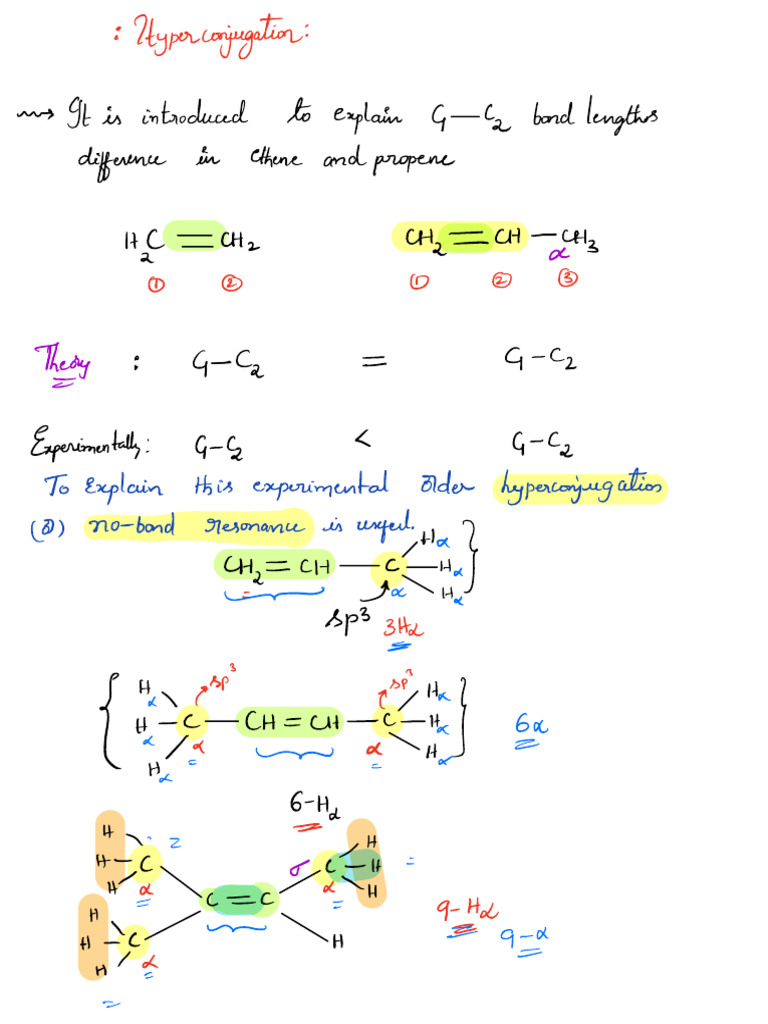 : Hyperconjugation:
⇝ It is introduced to explain C1—C2 bond lengths
difference in Ethene and propene
H2C=CH2 CH2=CH—CH3
α
① ② ① ② ③
Theory : C1—C2 = C1—C2
Experimentally: C1—C2 < C1—C2
To Explain this experimental order hyperconjugation
(or) no-bond resonance is useful.
CH2=CH—C Hα
Hα
α Hα
sp3 3Hα
sp3 sp3
Hα Hα
Hα C—CH=CH—C Hα 6α
α α
Hα Hα
6-Hα
H 2 H
H C σ C H =
H α α H
C=C
H 9-Hα
H C H 9-α
H α